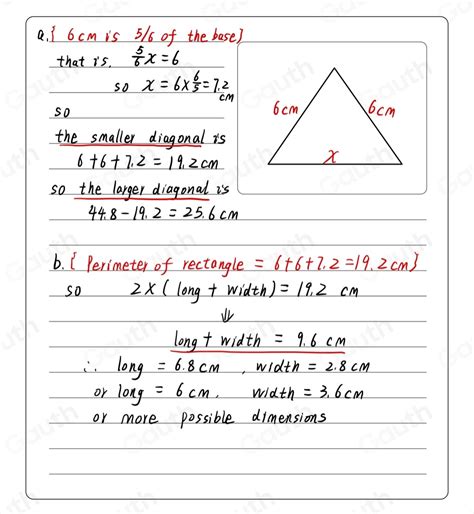 a. { 6cm is 5/6 of the base}
that is, 5/6 x = 6
so x = 6 × 6/5 = 7.2 cm
so
the smaller diagonal is
6+6+7.2 = 19.2 cm
so the larger diagonal is
44.8 - 19.2 = 25.6 cm
6cm
6cm
x
b. { Perimeter of rectangle = 6+6+7.2 = 19.2 cm}
so 2 × ( long + width ) = 19.2 cm
⇓
long + width = 9.6 cm
∴ long = 6.8 cm , width = 2.8 cm
or long = 6 cm , width = 3.6 cm
or more possible dimensions
Gauth